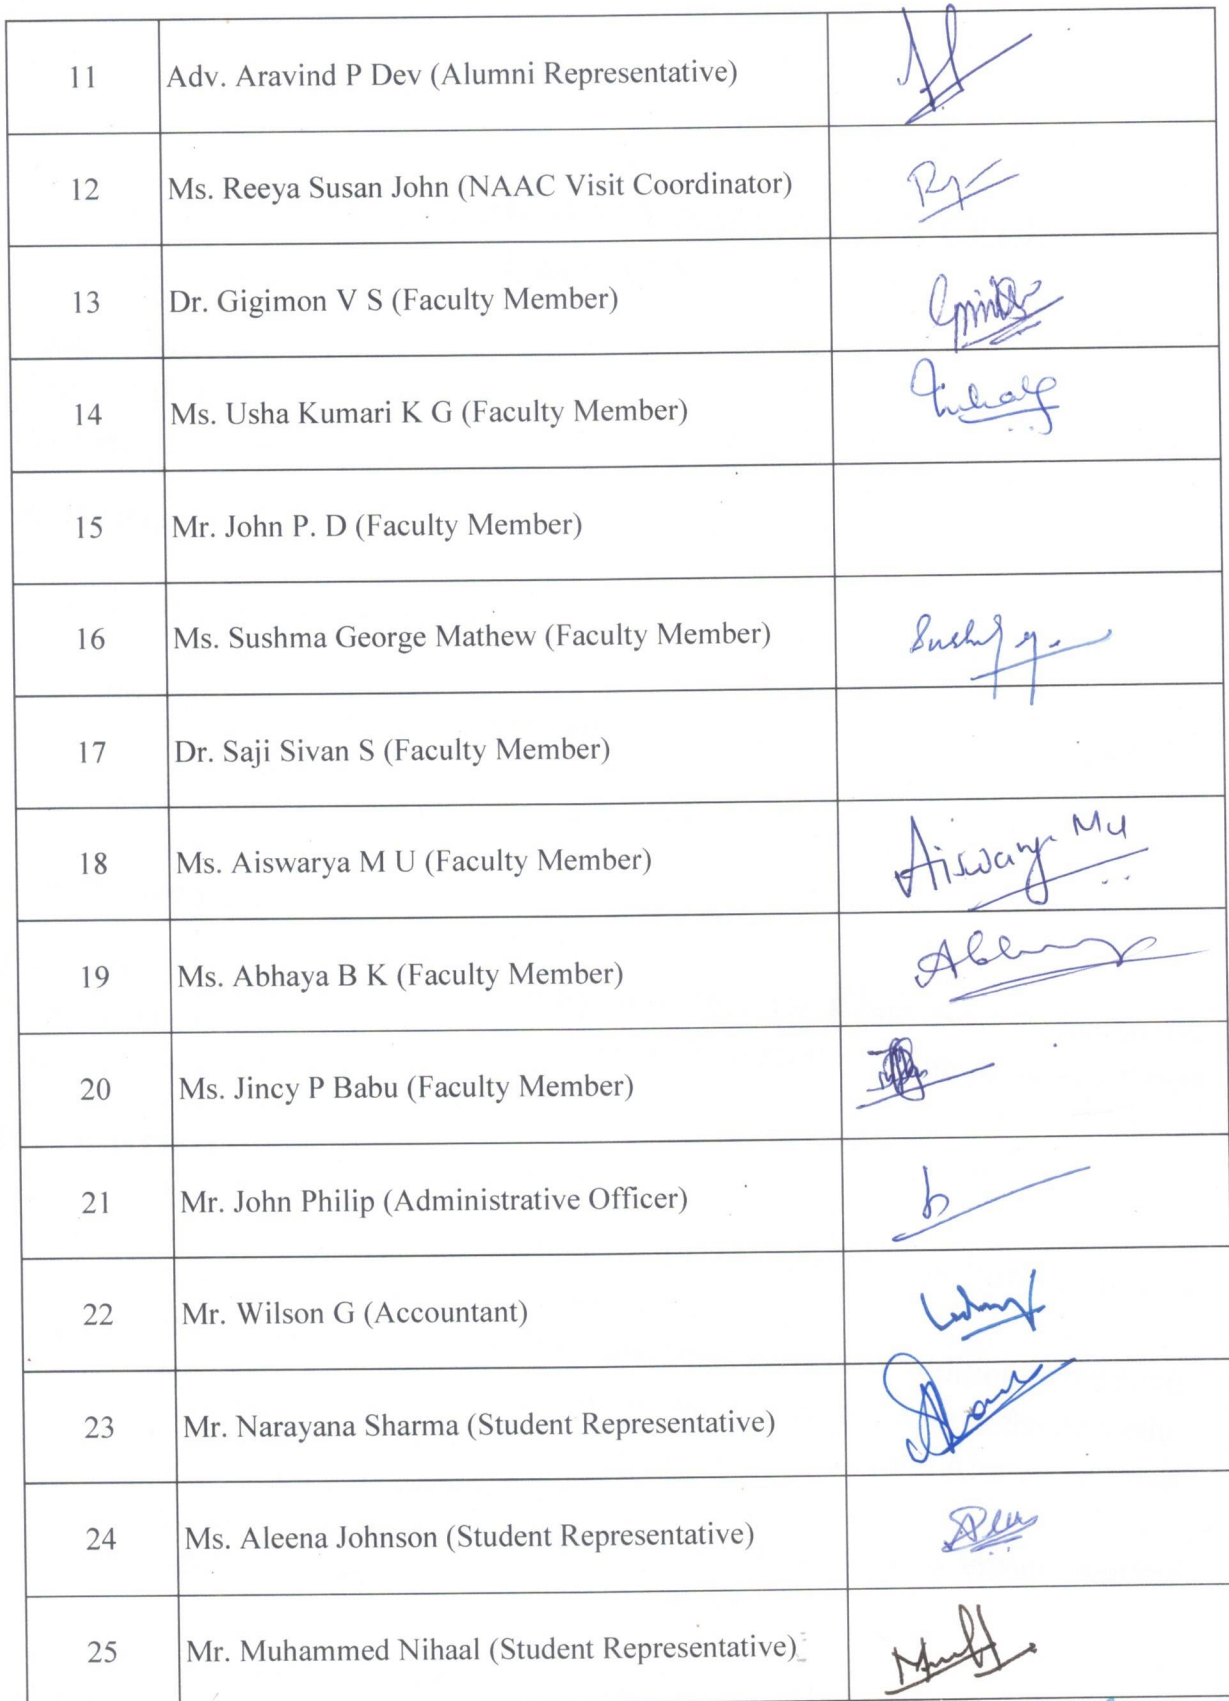 11 Adv. Aravind P Dev (Alumni Representative)
12 Ms. Reeya Susan John (NAAC Visit Coordinator)
13 Dr. Gigimon V S (Faculty Member)
14 Ms. Usha Kumari K G (Faculty Member)
15 Mr. John P. D (Faculty Member)
16 Ms. Sushma George Mathew (Faculty Member)
17 Dr. Saji Sivan S (Faculty Member)
18 Ms. Aiswarya M U (Faculty Member) Aiswarya M U
19 Ms. Abhaya B K (Faculty Member)
20 Ms. Jincy P Babu (Faculty Member)
21 Mr. John Philip (Administrative Officer)
22 Mr. Wilson G (Accountant)
23 Mr. Narayana Sharma (Student Representative)
24 Ms. Aleena Johnson (Student Representative)
25 Mr. Muhammed Nihaal (Student Representative)